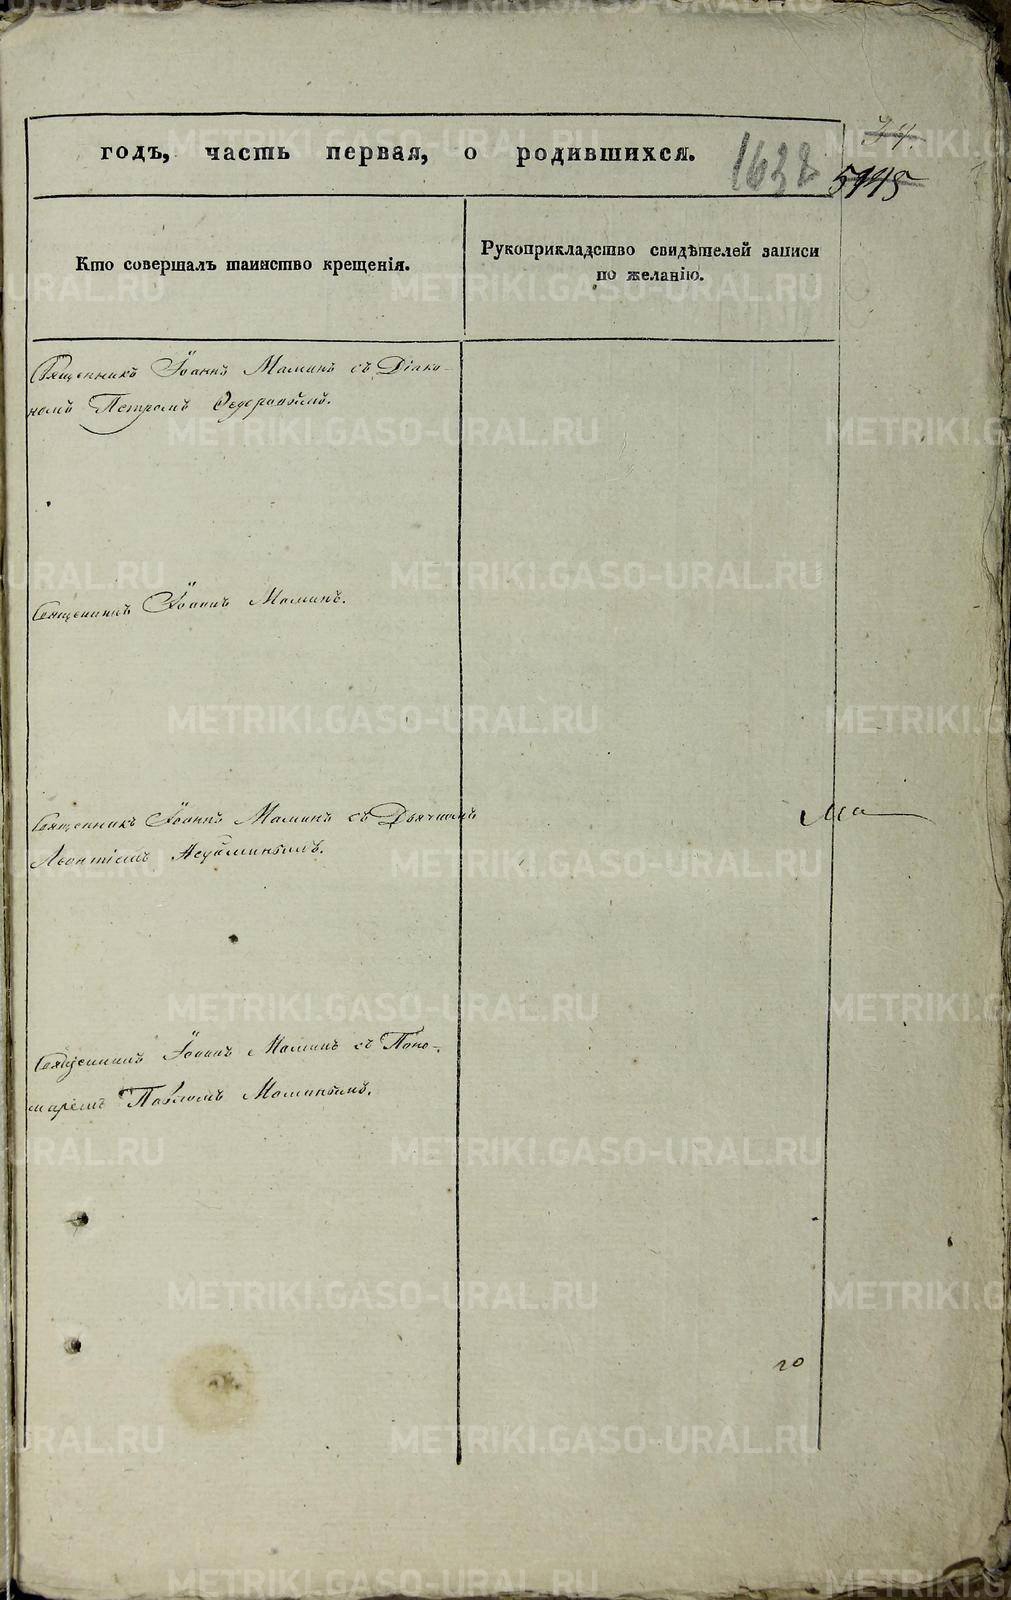 годъ, часть первая, о родившихся.
1632
5145
Кто совершалъ таинство крещенія.
Рукоприкладство свидѣтелей записи
по желанію.
Священникъ Іоаннъ Маминъ съ Діако-
номъ Петромъ
Священникъ Іоаннъ Маминъ.
Священникъ Іоаннъ Маминъ съ Дьячкомъ
Леонтіемъ
Ма
Священникъ Іоаннъ Маминъ съ Поно-
маремъ Павломъ Маминымъ.
го
METRIKI.GASO-URAL.RU